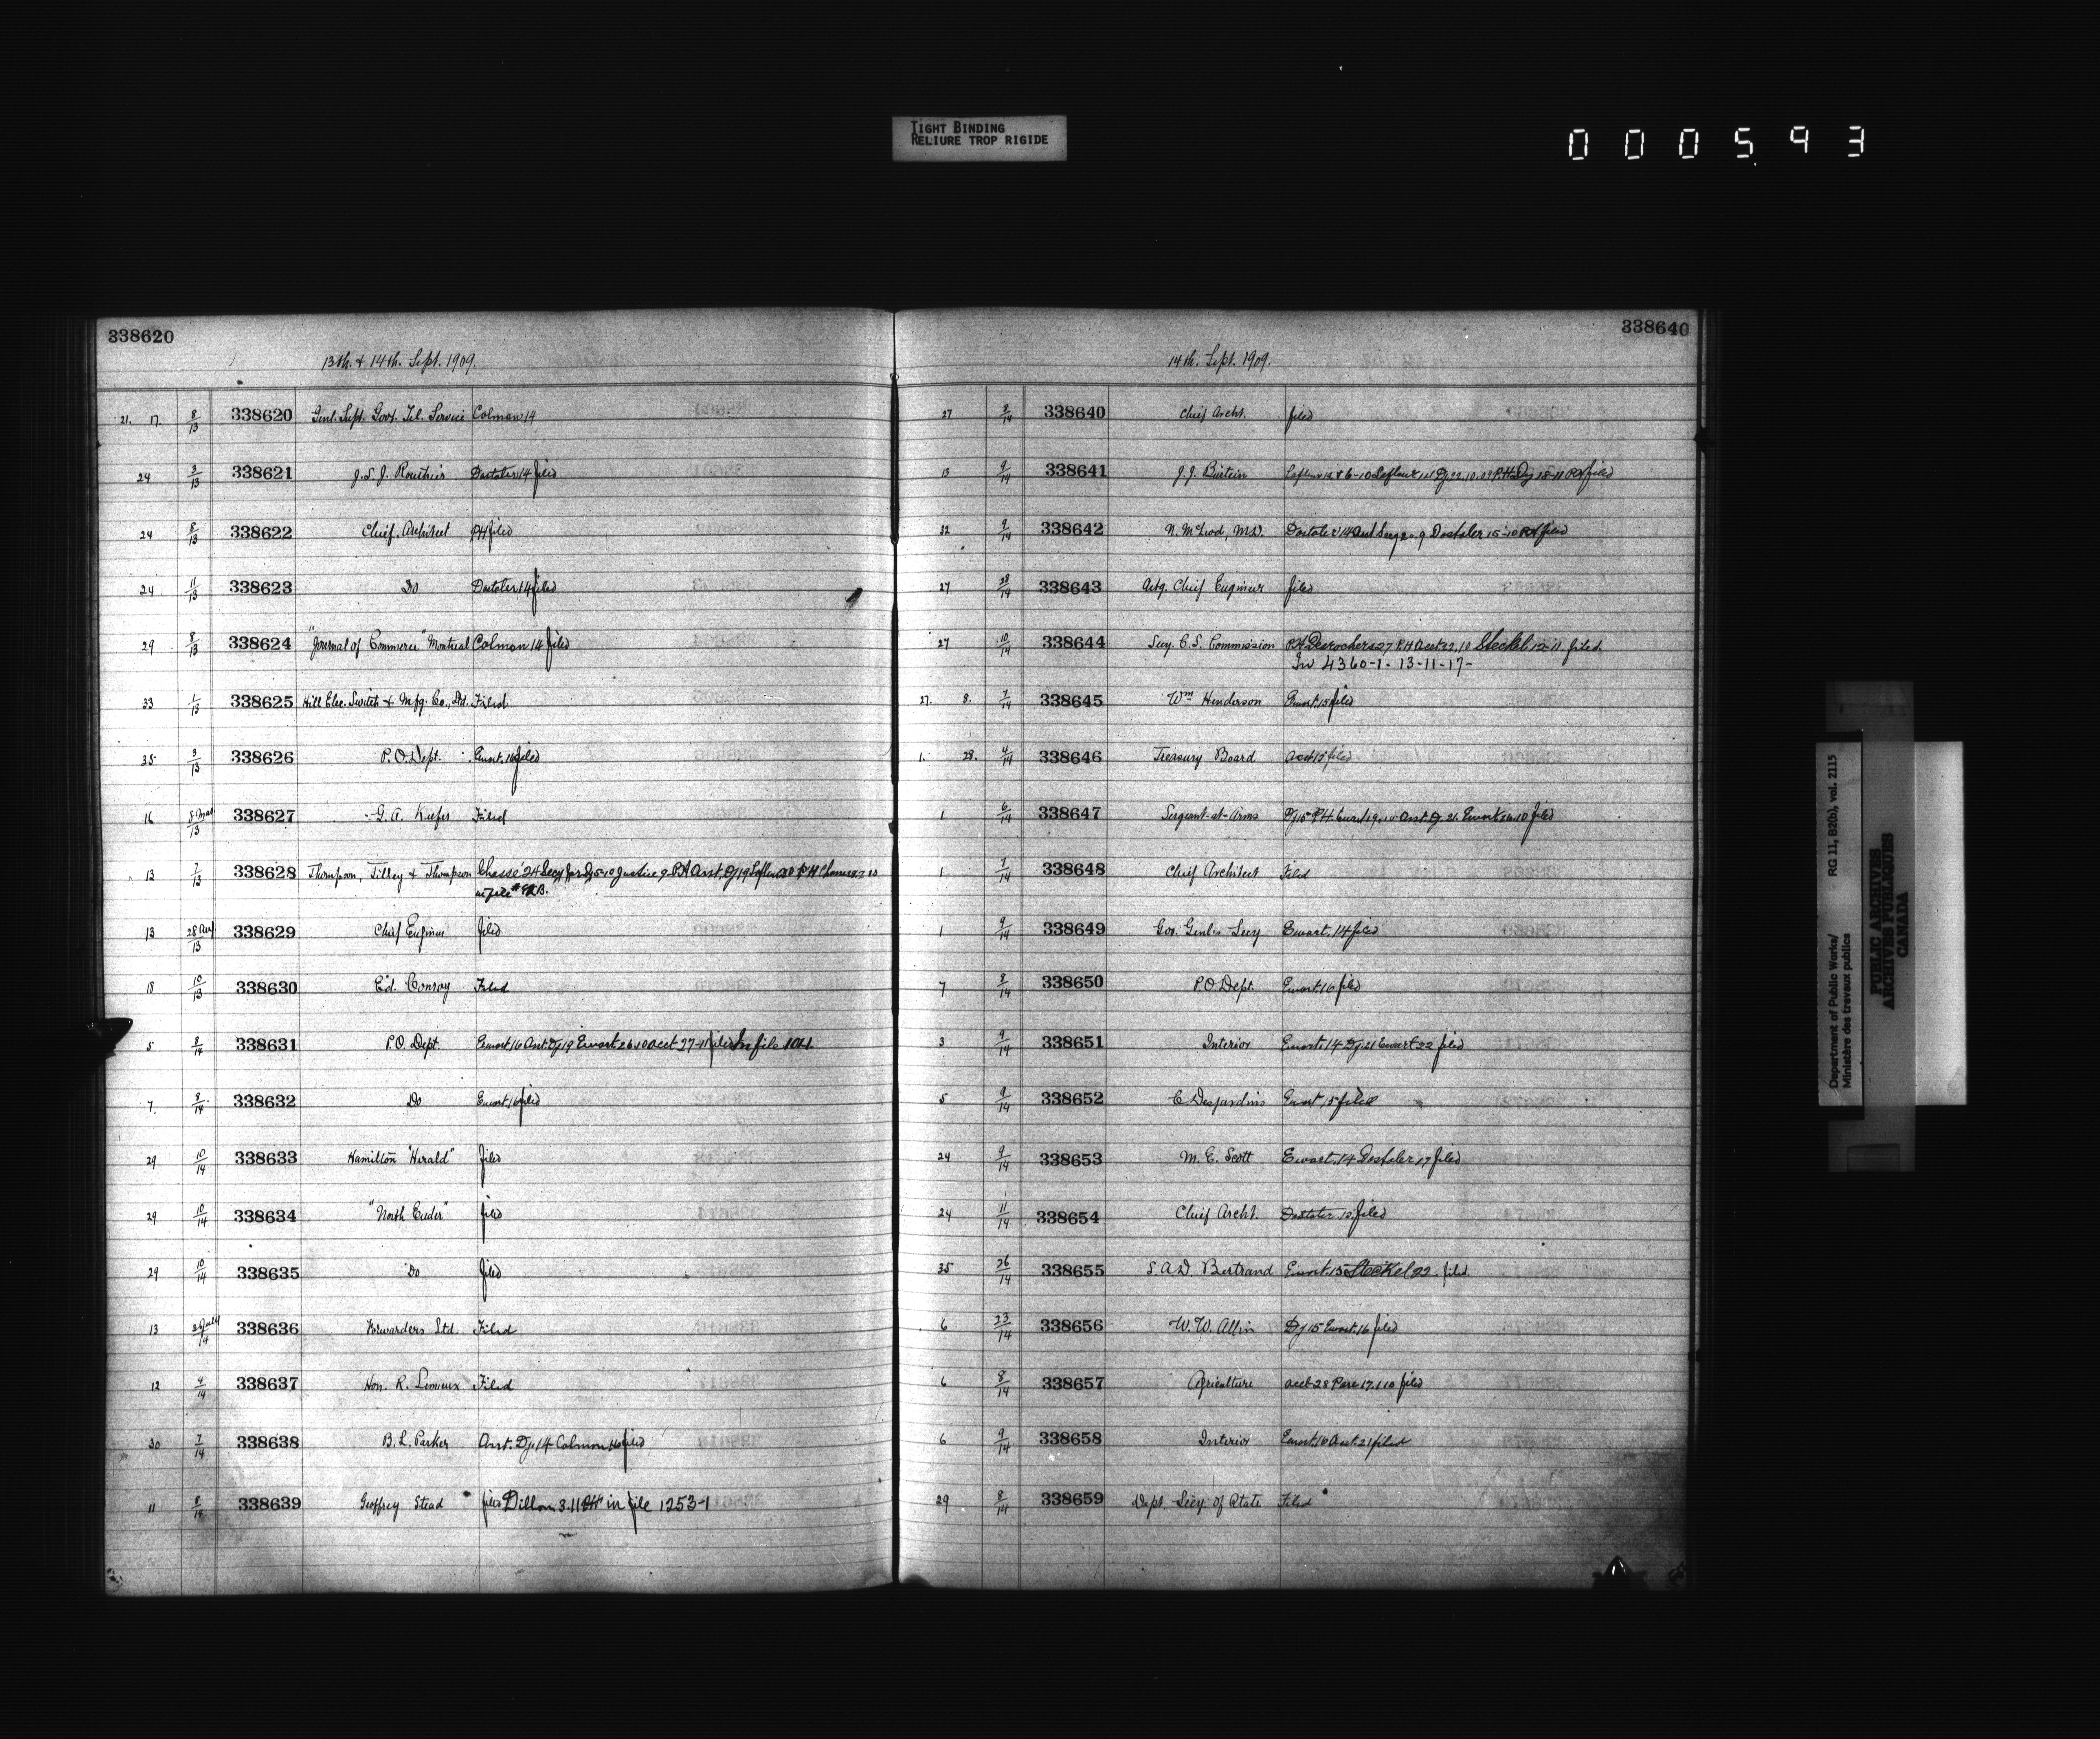 TIGHT BINDING
RELIURE TROP RIGIDE
000593
338620
13th. & 14th. Sept. 1909.
21. 17. 8/13 338620 Genl. Supt. Govt. Tel. Service Colman 14
24 3/13 338621 J. S. J. Routhier Dostaler 14 filed
24 8/13 338622 Chief Architect PH filed
24 11/13 338623 Do Dostaler 14 filed
29 8/13 338624 "Journal of Commerce" Montreal Colman 14 filed
33 1/13 338625 Hill Elec. Switch & Mfg. Co., Ltd. Filed
35 3/13 338626 P.O. Dept. Ewart. 16 filed
16 /13 338627 G. A. Keefer Filed
13 7/13 338628 Thompson, Tilley & Thompson Chassé 24 Secy
in file
13 /13 338629 Chief Engineer filed
18 10/13 338630 Ed. Conroy Filed
5 8/14 338631 P.O. Dept. Ewart 16 Asst. Dj 19 Ewart 26-10 acct 27-11 filed In file
7. 8/14 338632 Do Ewart, 16 filed
29 10/14 338633 Hamilton "Herald" filed
29 10/14 338634 "North Ender" filed
29 10/14 338635 Do filed
13 /14 338636 Forwarders Ltd. Filed
12 4/14 338637 Hon. R. Lemieux Filed
30 7/14 338638 B. L. Parker Asst. Dj. 14 Colman 16 filed
11 8/14 338639 Geoffrey Stead filed Dillon 3-11 in file 1253-1
338640
14th. Sept. 1909.
27 /14 338640 Chief Archt. filed
13 9/14 338641 J. J. filed
32 9/14 338642 N. McLeod, M.D. Dostaler 14 Asst Secy 20.9 Dostaler 15-10 PH filed
27 28/14 338643 Actg. Chief Engineer filed
27 10/14 338644 Secy. C. S. Commission PH Desrochers 27 P.H Acct 22.10 Steckel 12-11. filed.
In 4360-1. 13-11-17-
27. 8. 7/14 338645 Wm Henderson Ewart. 15 filed
1. 28. 4/14 338646 Treasury Board acct 15 filed
1 6/14 338647 Sergeant-at-Arms Dj 15 PH Ewart 19 Asst. Dj. 26 Ewart filed
1 7/14 338648 Chief Architect Filed
1 9/14 338649 Gov. Genl.s Secy. Ewart. 14 filed
7 8/14 338650 P.O. Dept. Ewart. 16 filed
3 9/14 338651 Interior Ewart. 14 Dj. 21 Ewart 22 filed
5 9/14 338652 C. Desjardins Ewart 15 filed
24 9/14 338653 M. E. Scott Ewart. 14 Dostaler 17 filed
24 11/14 338654 Chief Archt. Dostaler filed
35 26/14 338655 S. A. D. Bertrand Ewart. 15 Steckel 22. filed.
6 23/14 338656 W. W. Allin Dj 15 Ewart. 16 filed
6 8/14 338657 Agriculture acct 28 filed
6 9/14 338658 Interior Ewart. 16 Acct. 21 filed
29 8/14 338659 Dept. Secy. of State Filed
Department of Public Works/
Ministère des travaux publics
RG 11, B2(b), vol. 2115
PUBLIC ARCHIVES
ARCHIVES PUBLIQUES
CANADA